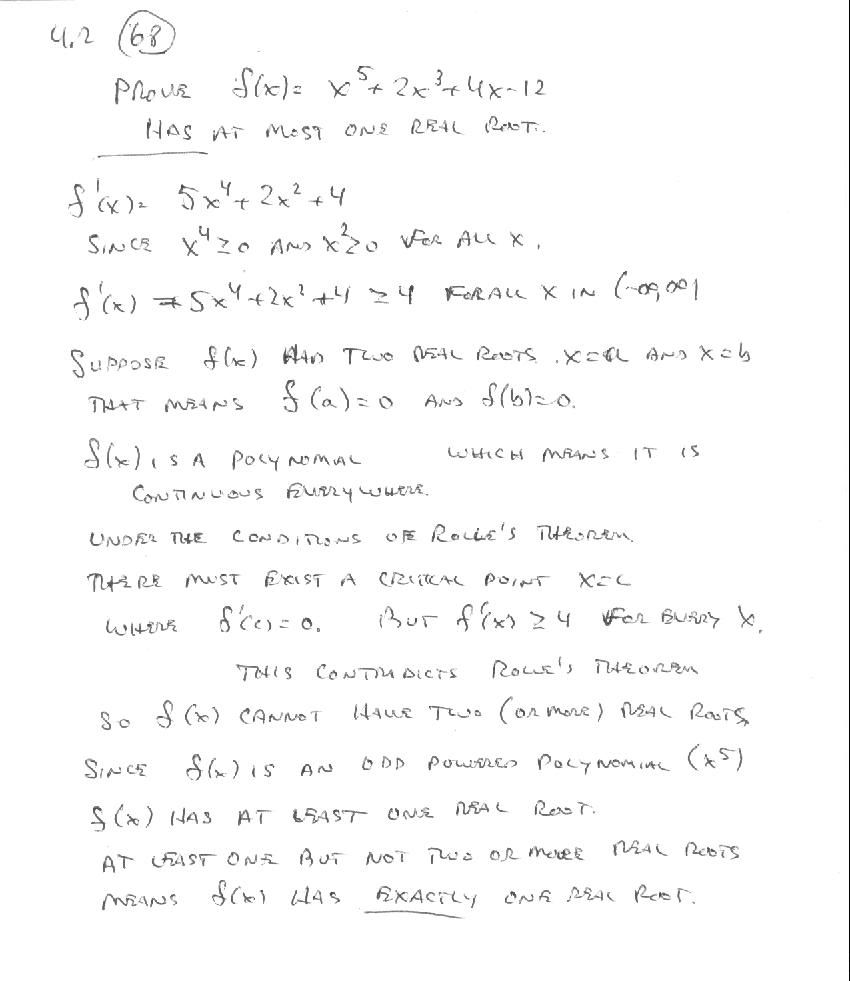 4.2 (68)
PROVE f(x) = x⁵ + 2x³ + 4x - 12
HAS AT MOST ONE REAL ROOT.
f'(x) = 5x⁴ + 2x² + 4
SINCE x⁴ ≥ 0 AND x² ≥ 0 FOR ALL x.
f'(x) = 5x⁴ + 2x² + 4 ≥ 4 FOR ALL X IN (-∞, ∞)
SUPPOSE f(x) HAD TWO REAL ROOTS. x=a AND x=b
THAT MEANS f(a) = 0 AND f(b) = 0.
f(x) IS A POLYNOMIAL WHICH MEANS IT IS
CONTINUOUS EVERYWHERE.
UNDER THE CONDITIONS OF ROLLE'S THEOREM.
THERE MUST EXIST A CRITICAL POINT X=C
WHERE f'(c) = 0. BUT f'(x) ≥ 4 FOR EVERY X.
THIS CONTRADICTS ROLLE'S THEOREM
SO f(x) CANNOT HAVE TWO (OR MORE) REAL ROOTS
SINCE f(x) IS AN ODD POWERED POLYNOMIAL (x⁵)
f(x) HAS AT LEAST ONE REAL ROOT.
AT LEAST ONE BUT NOT TWO OR MORE REAL ROOTS
MEANS f(x) HAS EXACTLY ONE REAL ROOT.